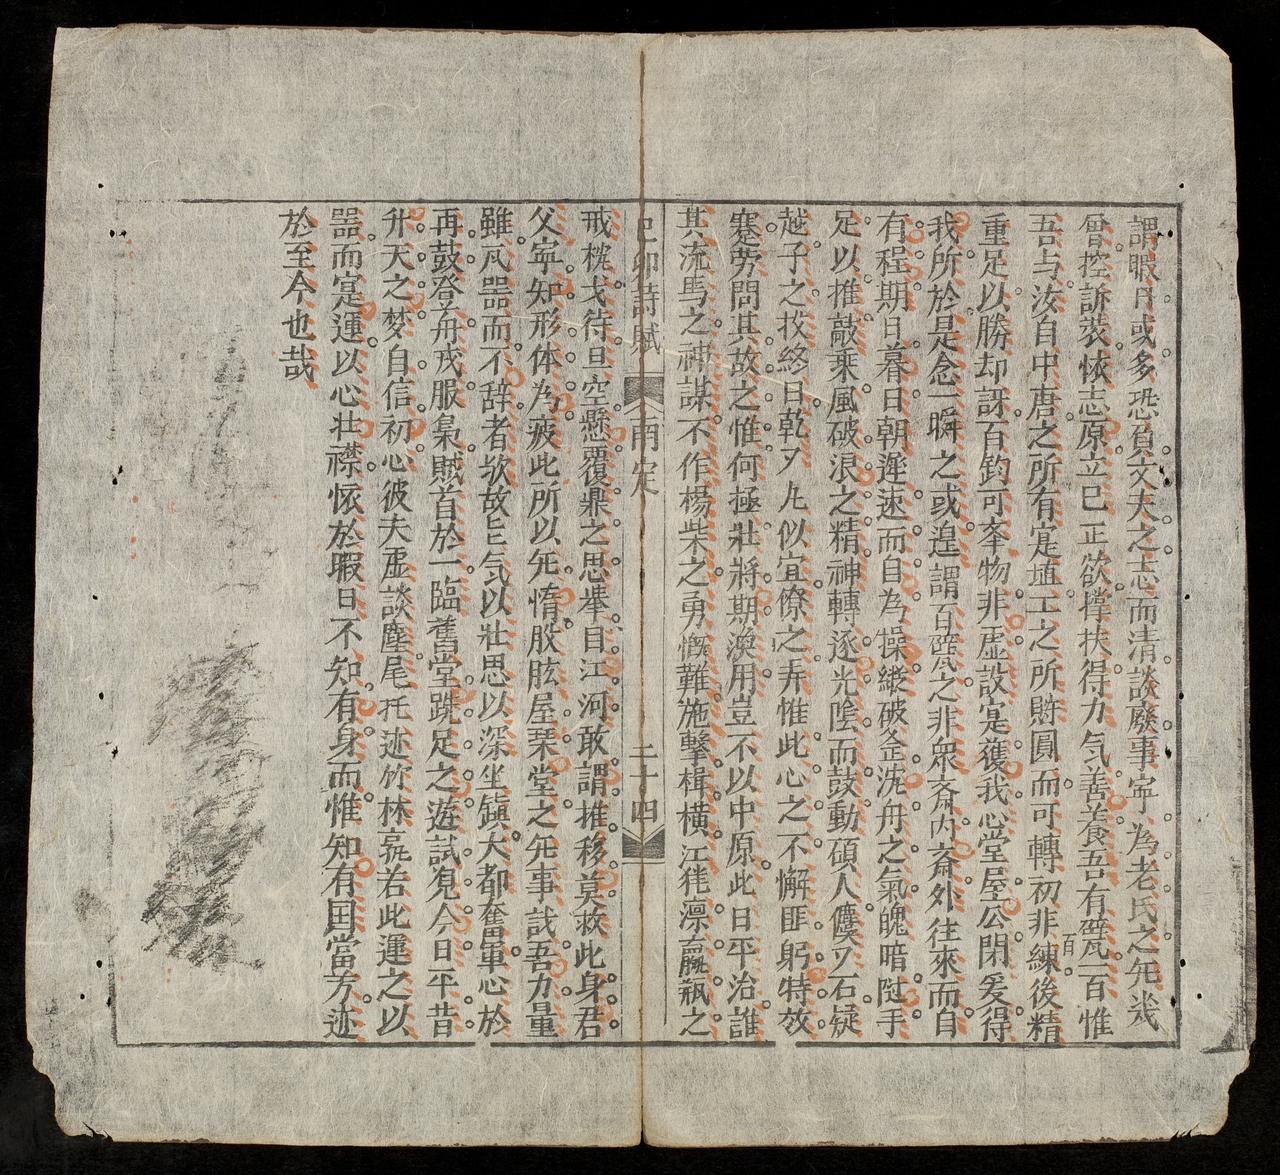 謂暇日或多恐負丈夫之志而清談廢事寧為老氏之死幾
曾控訴裝恢志原立已正欲撑扶得力气善養吾有甓百惟
百
吾与汝自中唐之所有寔埴工之所貯圓而可轉初非練後精
重足以勝却訝百鈞可牽物非虚設寔獲我心堂屋公閑爰得
我所於是念一瞬之或遑謂百甓之非衆斎内斎外往來而自
有程期日暮日朝遲速而自為操縱破釜沈舟之氣魄暗附手
足以推敲乘風破浪之精神轉逐光陰而鼓動碩人儀又石疑
越子之投終日乾乾似宜僚之弄惟此心之不懈匪躬特效
蹇旁問其故之惟何極壯將期渙用豈不以中原此日平治誰
其流馬之神謀不作楊柴之勇慨難施擊楫橫江徒凛羸瓶之
己卯詩賦 甬定 二十四
戒枕戈待旦空懸覆鼎之思舉目江河敢謂推移莫救此身君
父寧知形体為疲此所以死惰肢胘屋琹堂之死事試吾力量
雖瓦器而不辞者欤故㠯气以壯思以深坐鎮大都奮軍心於
再鼓登舟戎服梟賊首於一臨舊堂蹺足之遊試覓今日平昔
升天之梦自信初心彼夫虚談麈尾托迹竹林豈若此運之以
噐而寔運以心壮襟恢於暇日不知有身而惟知有囯當方迹
於至今也哉